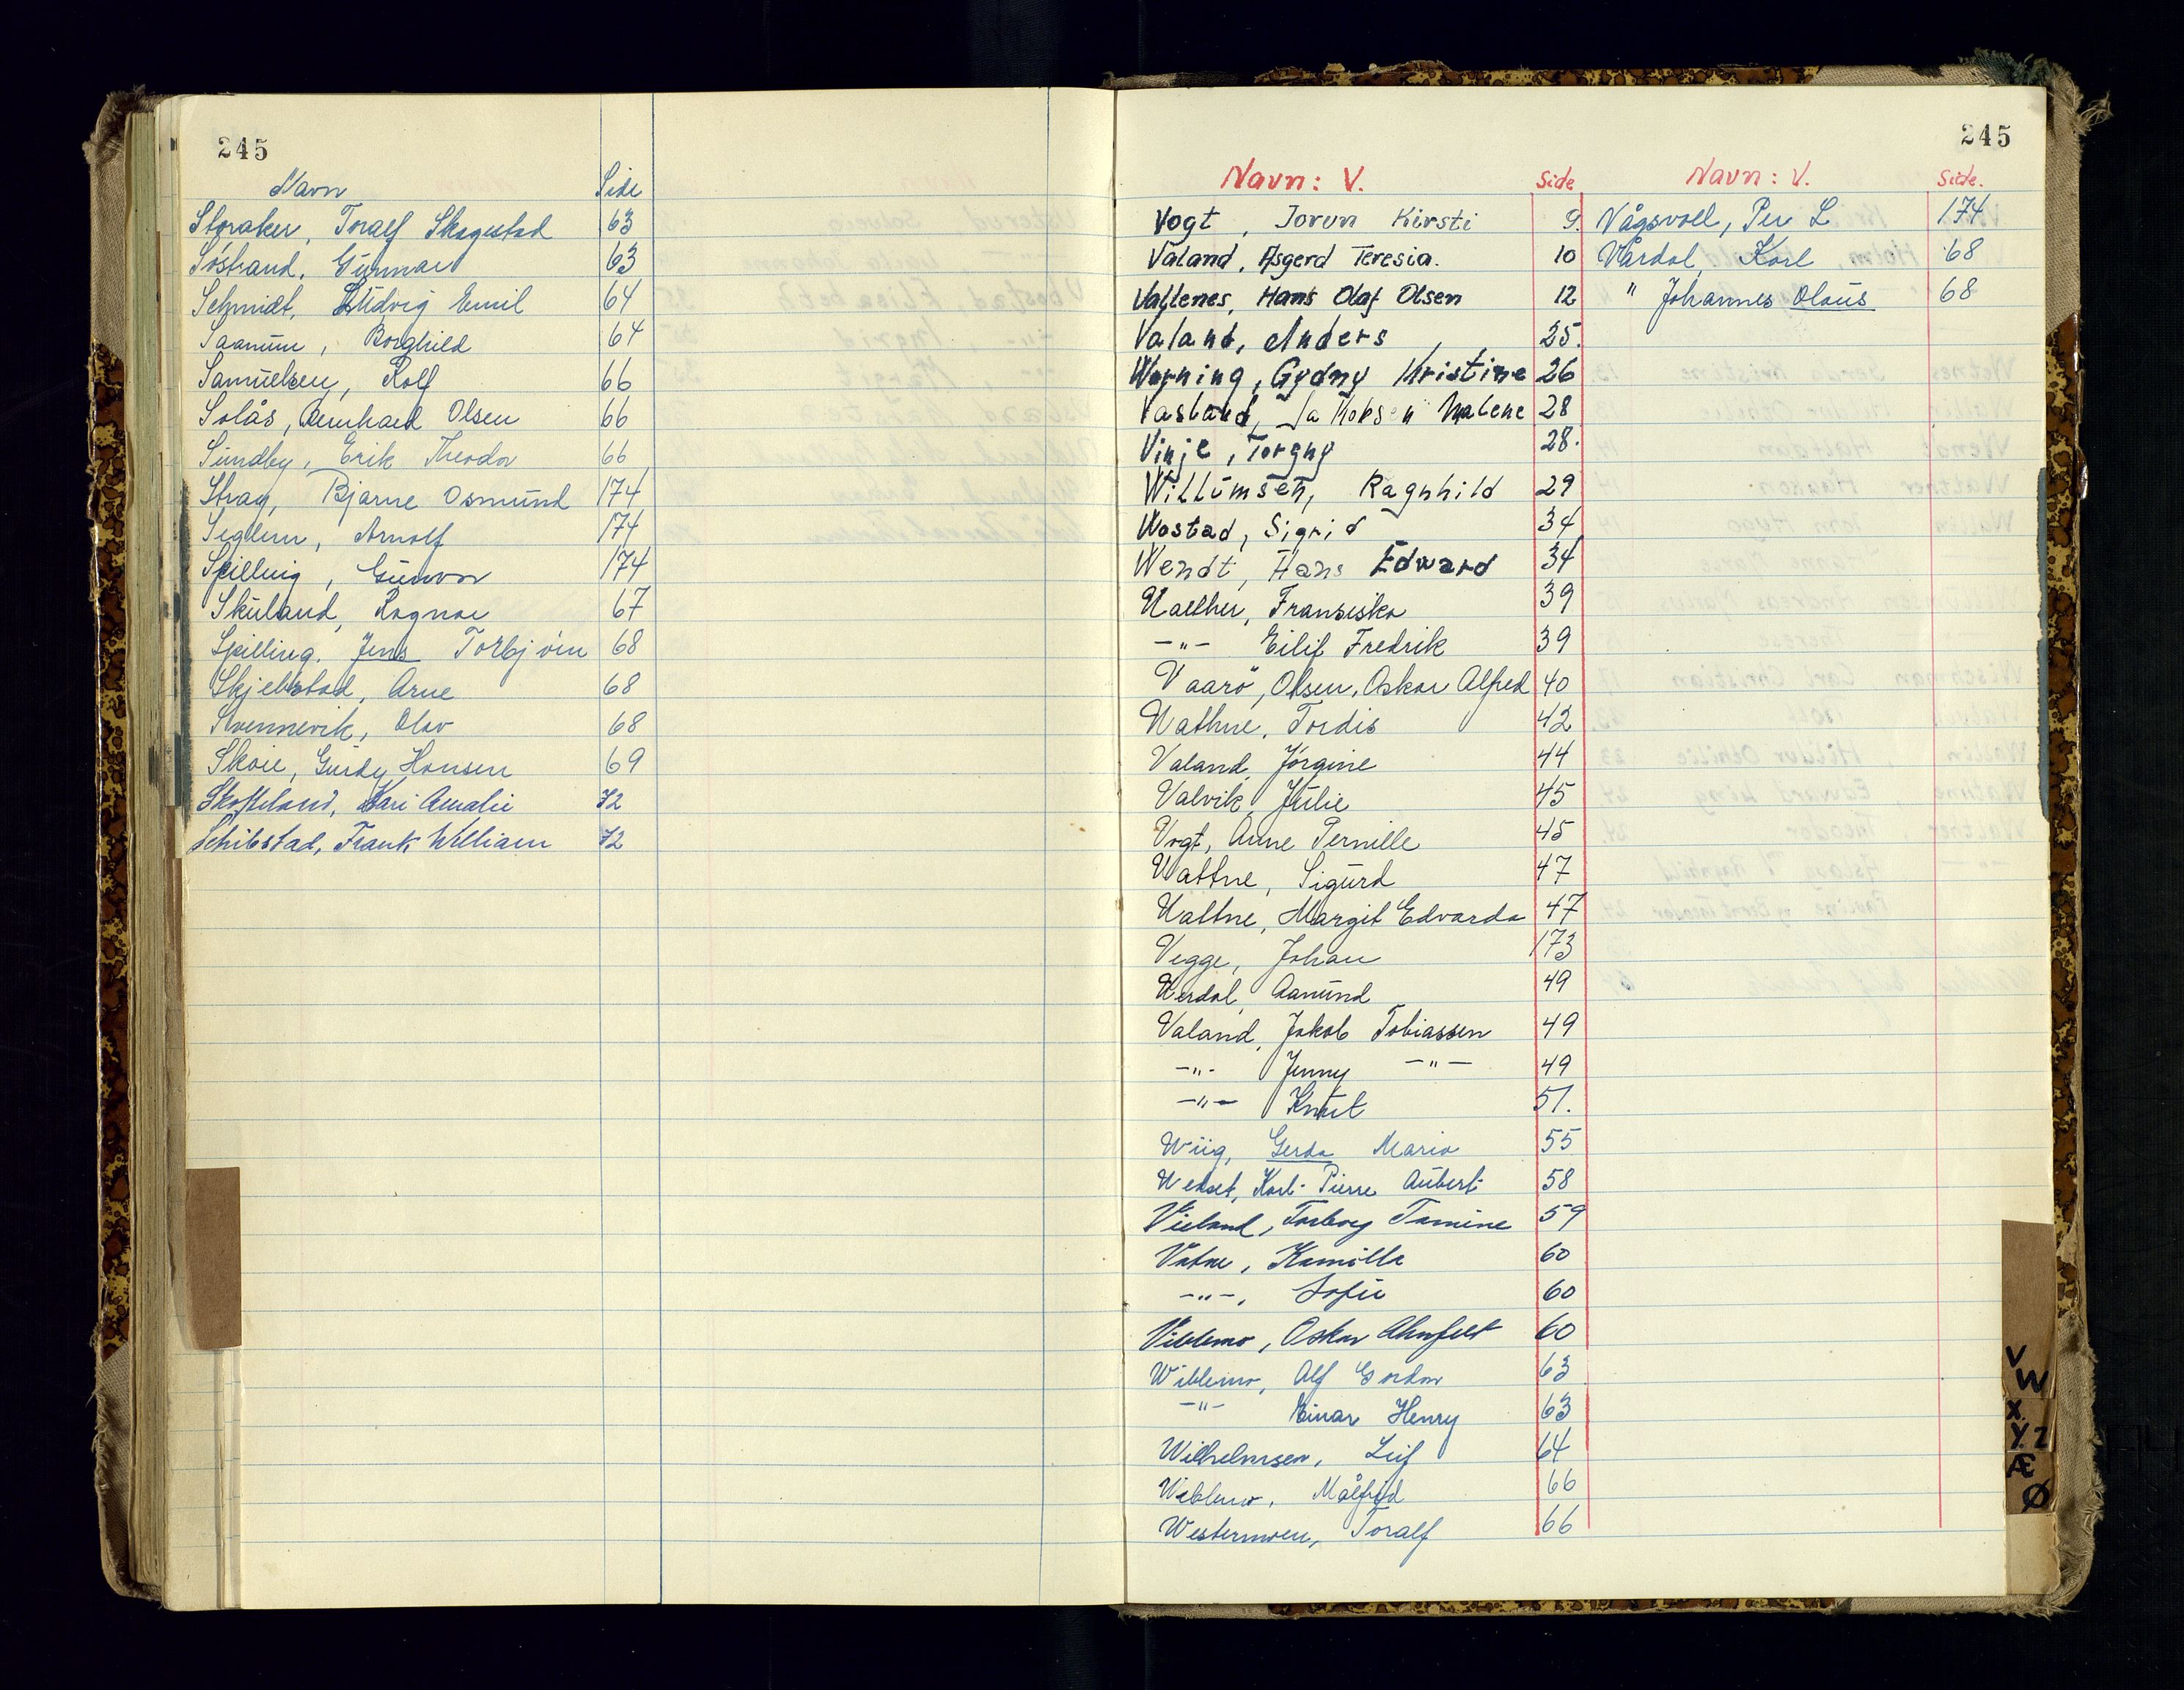 245
Navn Side
Storaker, Toralf Skagestad 63
Söstrand, Gunnar 63
Schmidt, Ludvig Emil 64
Saanum, Borghild 64
Samuelsen, Rolf 66
Solås, Bernhard Olsen 66
Sundby, Erik Theodor 66
Stray, Bjarne Osmund 174
Seglem, Arnolf 174
Spilling, Gunvor 174
Skuland, Ragnar 67
Spilling, Jens Torbjörn 68
Skjebstad, Arne 68
Svennevik, Olav 68
Skoie, Gurdy Hansen 69
Skofteland, Kari Amalie 72
Schibstad, Frank William 72
245
Navn: V. Side Navn: V. Side.
Vogt, Jorun Kirsti 9. Vågsvoll, Per L 174
Valand, Asgerd Teresia. 10 Vårdal, Karl 68
Vatlenes, Hans Olaf Olsen 12 " Johannes Olaus 68
Valand, Anders 25.
Worning, Gydny Kristine 26
Vasland, Jakobsen Malene 28
Vinje, Torgny 28.
Willumsen, Ragnhild 29
Wostad, Sigrid 34
Wendt, Hans Edward 34
Walther, Fransiska 39
-"- Eilif Fredrik 39
Vaarö, Olsen, Oskar Alfred 40
Wathne, Tordis 42
Valand, Jörgine 44
Valvik, Julie 45
Vogt, Anne Pernille 45
Wattne, Sigurd 47
Wattne, Margit Edvarda 47
Vegge, Johan 173
Werdal, Aanund 49
Valand, Jakob Tobiassen 49
-"- Jenny -"- 49
-"- Knut 51.
Wiig, Gerda Maria 55
Karl-Pierre Aubert 58
Vieland, Torborg Tomine 59
Vatne, Kamilla 60
-"-, Sofie 60
Viblemo, Oskar Ahnfelt 60
Wiblemo, Alf Gordon 63
-"- Einar Henry 63
Wilhelmsen, Leif 64
Viblemo, Målfrid 66
Westermoen, Toralf 66
V
W
X.
Y. Z
Æ
Ø